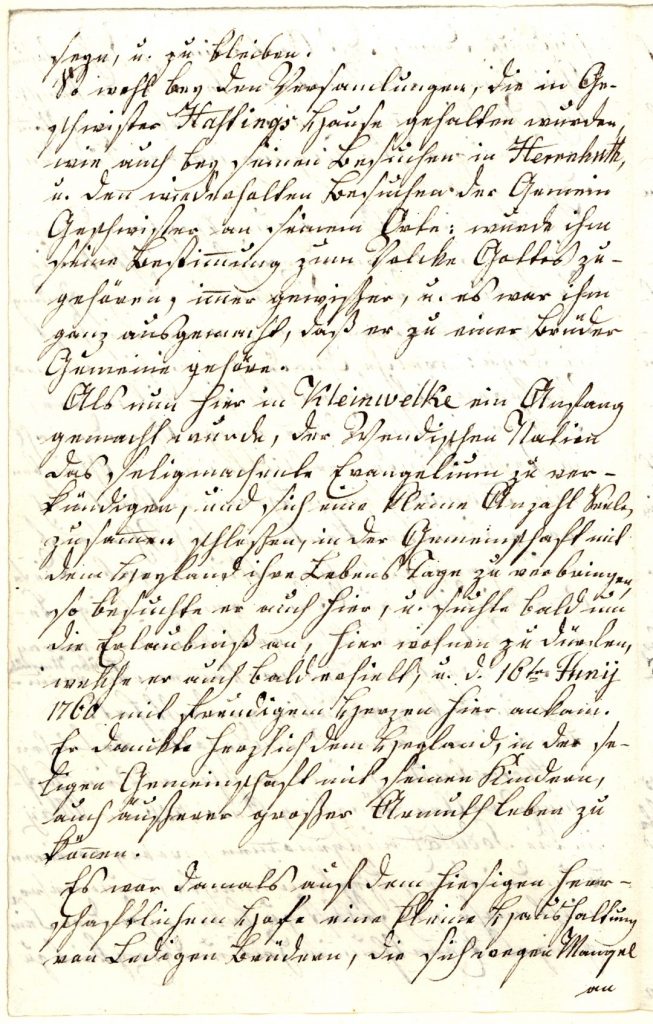 seyn, u. zu bleiben.
So wohl bey den Versamlungen, die in Ge-
schwister Hastings Hause gehalten wurden,
wie auch bey seinen Besuchen in Herrnhuth,
u. den wiederholten Besuchen der Gemein
Geschwister an seinem Orte: wurde ihm
seine Bestimung zum Volcke Gottes zu-
gehören, imer gewißer, u. es war ihm
ganz ausgemacht, daß er zu einer Brüder
Gemeine gehöre.
Als nun hier in Kleinwelke ein Anfang
gemacht wurde, der Wendischen Nation
das seligmachende Evangelium zu ver-
kündigen, und sich eine kleine Anzahl Seelen
zusamen schloßen, in der Gemeinschaft mit
dem Heyland ihre Lebens Tage zu verbringen,
so besuchte er auch hier, u. suchte bald um
die Erlaubniß an, hier wohnen zu dürfen,
welche er auch bald erhielt, u. d. 16ten Junij
1760 mit freudigem Herzen hier ankam.
Er danckte herzlich dem Heyland, in der se-
ligen Gemeinschaft mit seinen Kindern,
auch äußerer großer Armuth leben zu
könen.
Es war damals auf dem hiesigen herr-
schaftlichem Hofe eine kleine Haushaltung
von Ledigen Brüdern, die sich wegen Mangel
an